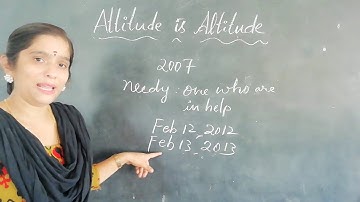 Attitude is Altitude
2007
needy : one who are
in help
Feb 12, 2012
Feb 13, 2013